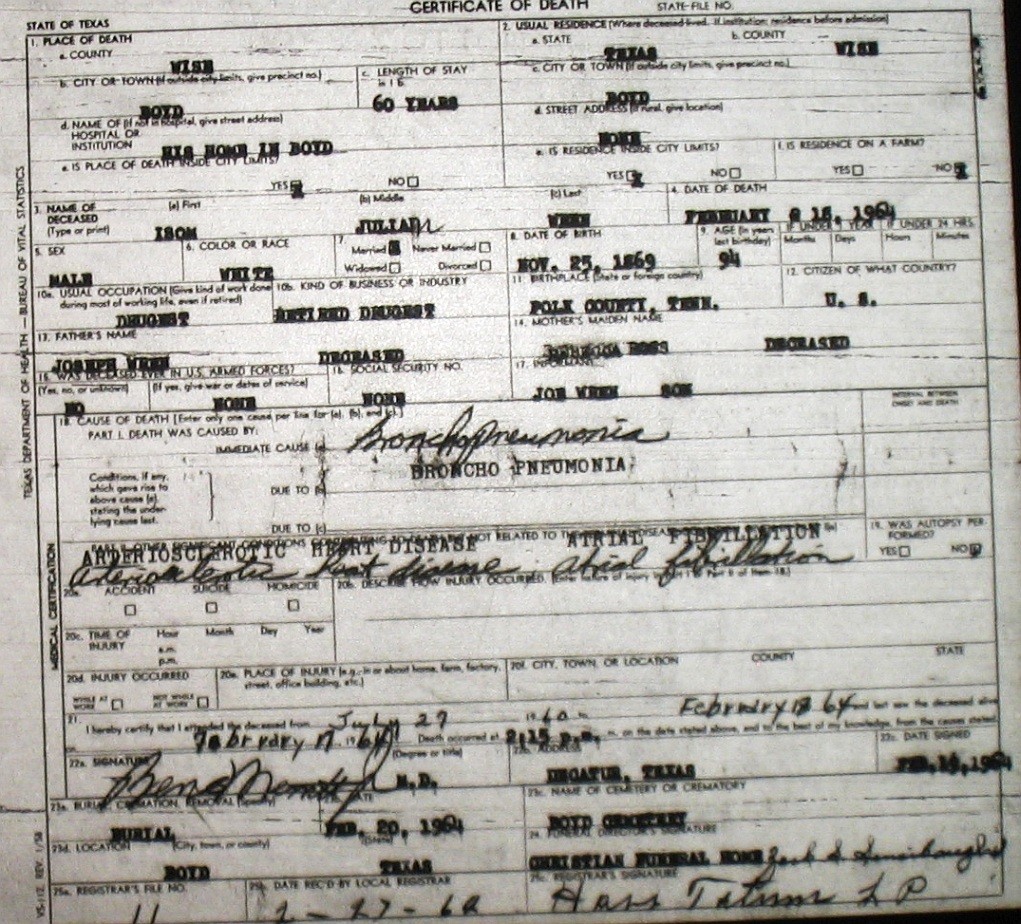 CERTIFICATE OF DEATH
STATE OF TEXAS STATE-FILE NO.
1. PLACE OF DEATH 2. USUAL RESIDENCE (Where deceased lived. If institution: residence before admission)
a. COUNTY a. STATE b. COUNTY
WISE TEXAS WISE
b. CITY OR TOWN (If outside city limits, give precinct no.) c. LENGTH OF STAY in 1b c. CITY OR TOWN (If outside city limits, give precinct no.)
BOYD 60 YEARS BOYD
d. NAME OF (If not in hospital, give street address) HOSPITAL OR INSTITUTION d. STREET ADDRESS (If rural, give location)
HIS HOME IN BOYD NONE
e. IS PLACE OF DEATH INSIDE CITY LIMITS? e. IS RESIDENCE INSIDE CITY LIMITS? f. IS RESIDENCE ON A FARM?
YES X NO YES X NO YES NO X
3. NAME OF DECEASED (Type or print) (a) First (b) Middle (c) Last 4. DATE OF DEATH
ISOM JULIAN WEEN FEBRUARY 1964
5. SEX 6. COLOR OR RACE 7. Married Never Married Widowed Divorced 8. DATE OF BIRTH 9. AGE (In years last birthday) IF UNDER 1 YEAR IF UNDER 24 HRS.
Months Days Hours Minutes
MALE WHITE NOV. 25, 1869 94
10a. USUAL OCCUPATION (Give kind of work done during most of working life, even if retired) 10b. KIND OF BUSINESS OR INDUSTRY 11. BIRTHPLACE (State or foreign country) 12. CITIZEN OF WHAT COUNTRY?
DRUGEST RETIRED DRUGEST POLK COUNTY, TENN. U. S.
13. FATHER'S NAME 14. MOTHER'S MAIDEN NAME
JOSEPH WEEN DECEASED ROSS DECEASED
15. WAS DECEASED EVER IN U.S. ARMED FORCES? 16. SOCIAL SECURITY NO. 17. INFORMANT
(Yes, no, or unknown) (If yes, give war or dates of service)
NO NONE NONE JOE WEEN SON
18. CAUSE OF DEATH [Enter only one cause per line for (a), (b), and (c).] INTERVAL BETWEEN ONSET AND DEATH
PART I. DEATH WAS CAUSED BY:
IMMEDIATE CAUSE (a) Bronchopneumonia
BRONCHO PNEUMONIA
Conditions, if any, which gave rise to above cause (a), stating the underlying cause last.
DUE TO (b)
DUE TO (c)
PART II. OTHER SIGNIFICANT CONDITIONS CONTRIBUTING TO DEATH BUT NOT RELATED TO THE TERMINAL DISEASE 19. WAS AUTOPSY PERFORMED?
ARDERTIOSCLEROTIC HEART DISEASE ATRIAL FIBRILLATION
Arteriosclerotic Heart disease. Atrial fibrillation YES NO
20a. ACCIDENT SUICIDE HOMICIDE 20b. DESCRIBE HOW INJURY OCCURRED. (Enter nature of injury in Part I or Part II of Item 18.)
20c. TIME OF INJURY Hour Month Day Year
a.m.
p.m.
20d. INJURY OCCURRED 20e. PLACE OF INJURY (e.g., in or about home, farm, factory, street, office building, etc.) 20f. CITY, TOWN, OR LOCATION COUNTY STATE
WHILE AT WORK NOT WHILE AT WORK
21. I hereby certify that I attended the deceased from July 27 1960 February 64 and last saw the deceased alive
February 17, 1964 Death occurred at 2:15 p.m. on the date stated above, and to the best of my knowledge, from the causes stated.
22a. SIGNATURE (Degree or title) 22b. ADDRESS 22c. DATE SIGNED
M.D. DECATUR, TEXAS FEB. 1964
23a. BURIAL, CREMATION, REMOVAL (Specify) 23b. DATE 23c. NAME OF CEMETERY OR CREMATORY
BURIAL FEB. 20, 1964 BOYD CEMETERY
23d. LOCATION (City, town, or county) (State) 24. FUNERAL DIRECTOR'S SIGNATURE
BOYD TEXAS CHRISTIAN FUNERAL HOME
25a. REGISTRAR'S FILE NO. 25b. DATE REC'D BY LOCAL REGISTRAR 25c. REGISTRAR'S SIGNATURE
11 2-27-64 Tatum
TEXAS DEPARTMENT OF HEALTH — BUREAU OF VITAL STATISTICS
MEDICAL CERTIFICATION
VS-112, REV. 1/58